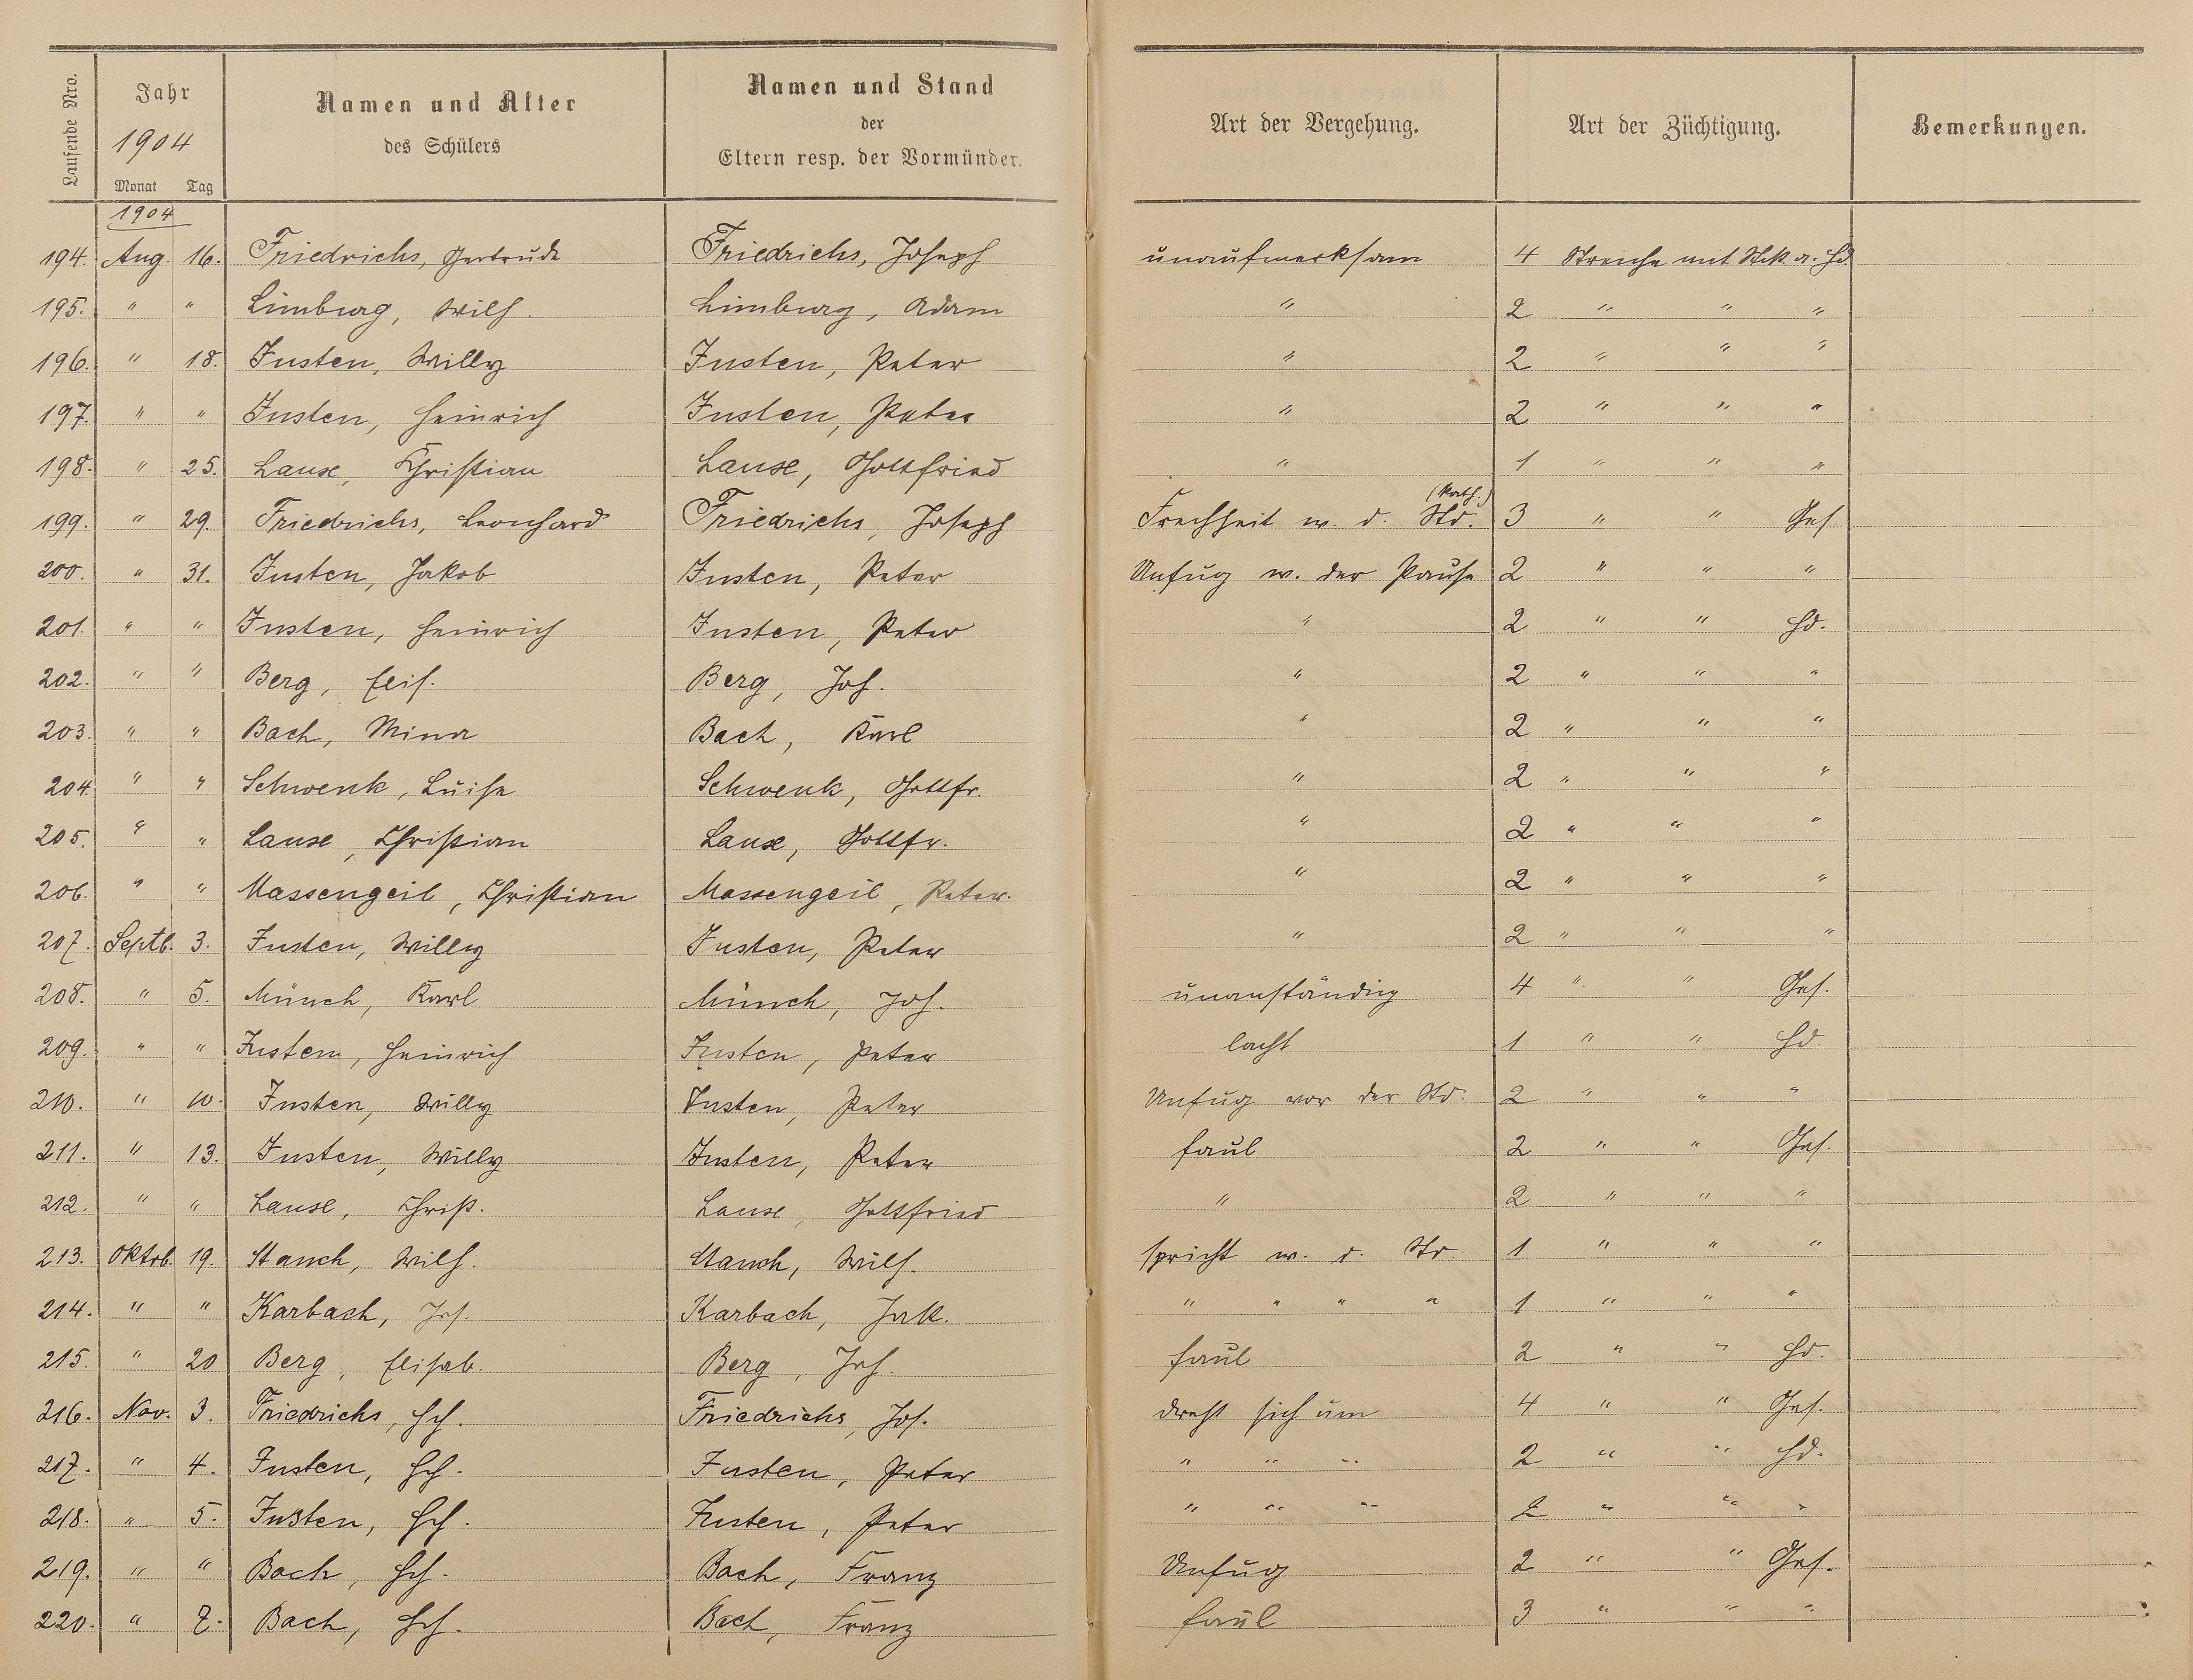 Laufende Nro.
Jahr
1904
Monat Tag
Namen und Alter
des Schülers
Namen und Stand
der
Eltern resp. der Vormünder.
Art der Vergehung.
Art der Züchtigung.
Bemerkungen.
1904
194. Aug. 16. Friedrichs, Gertrude Friedrichs, Joseph unaufmerksam 4 Streiche mit Stck a. Hd.
195. " " Limburg, Wilh. Limburg, Adam " 2 " " "
196. " 18. Justen, Willy Justen, Peter " 2 " " "
197. " " Justen, Heinrich Justen, Peter " 2 " " "
198. " 25. Lause, Christian Lause, Gottfried " 1 " " "
199. " 29. Friedrichs, Leonhard Friedrichs, Joseph Frechheit w. d. (Kath.) Std. 3 " " Ges.
200. " 31. Justen, Jakob Justen, Peter Unfug w. der Pause 2 " " "
201. " " Justen, Heinrich Justen, Peter " 2 " " Hd.
202. " " Berg, Elis. Berg, Joh. " 2 " " "
203. " " Bach, Mina Bach, Karl " 2 " " "
204. " " Schwenk, Luise Schwenk, Gottfr. " 2 " " "
205. " " Lause, Christian Lause, Gottfr. " 2 " " "
206. " " Massengeil, Christian Massengeil, Peter. " 2 " " "
207. Septb. 3. Justen, Willy Justen, Peter " 2 " " "
208. " 5. Münch, Karl Münch, Joh. unanständig 4 " " Ges.
209. " " Justen, Heinrich Justen, Peter lacht 1 " " Hd.
210. " 10. Justen, Willy Justen, Peter Unfug vor der Std. 2 " " "
211. " 13. Justen, Willy Justen, Peter faul 2 " " Ges.
212. " " Lause, Christ. Lause, Gottfried " 2 " " "
213. Oktob. 19. Stauch, Wilh. Stauch, Wilh. spricht w. d. Std. 1 " " "
214. " " Karbach, Jos. Karbach, Jak. " " " " 1 " " "
215. " 20 Berg, Elisab. Berg, Joh. faul 2 " " Hd.
216. Nov. 3. Friedrichs, Hch. Friedrichs, Jos. dreht sich um 4 " " Ges.
217. " 4. Justen, Hch. Justen, Peter " " " 2 " " Hd.
218. " 5. Justen, Hch. Justen, Peter " " " 2 " " "
219. " " Bach, Hch. Bach, Franz Unfug 2 " " Ges.
220. " 7. Bach, Hch. Bach, Franz faul 3 " " "